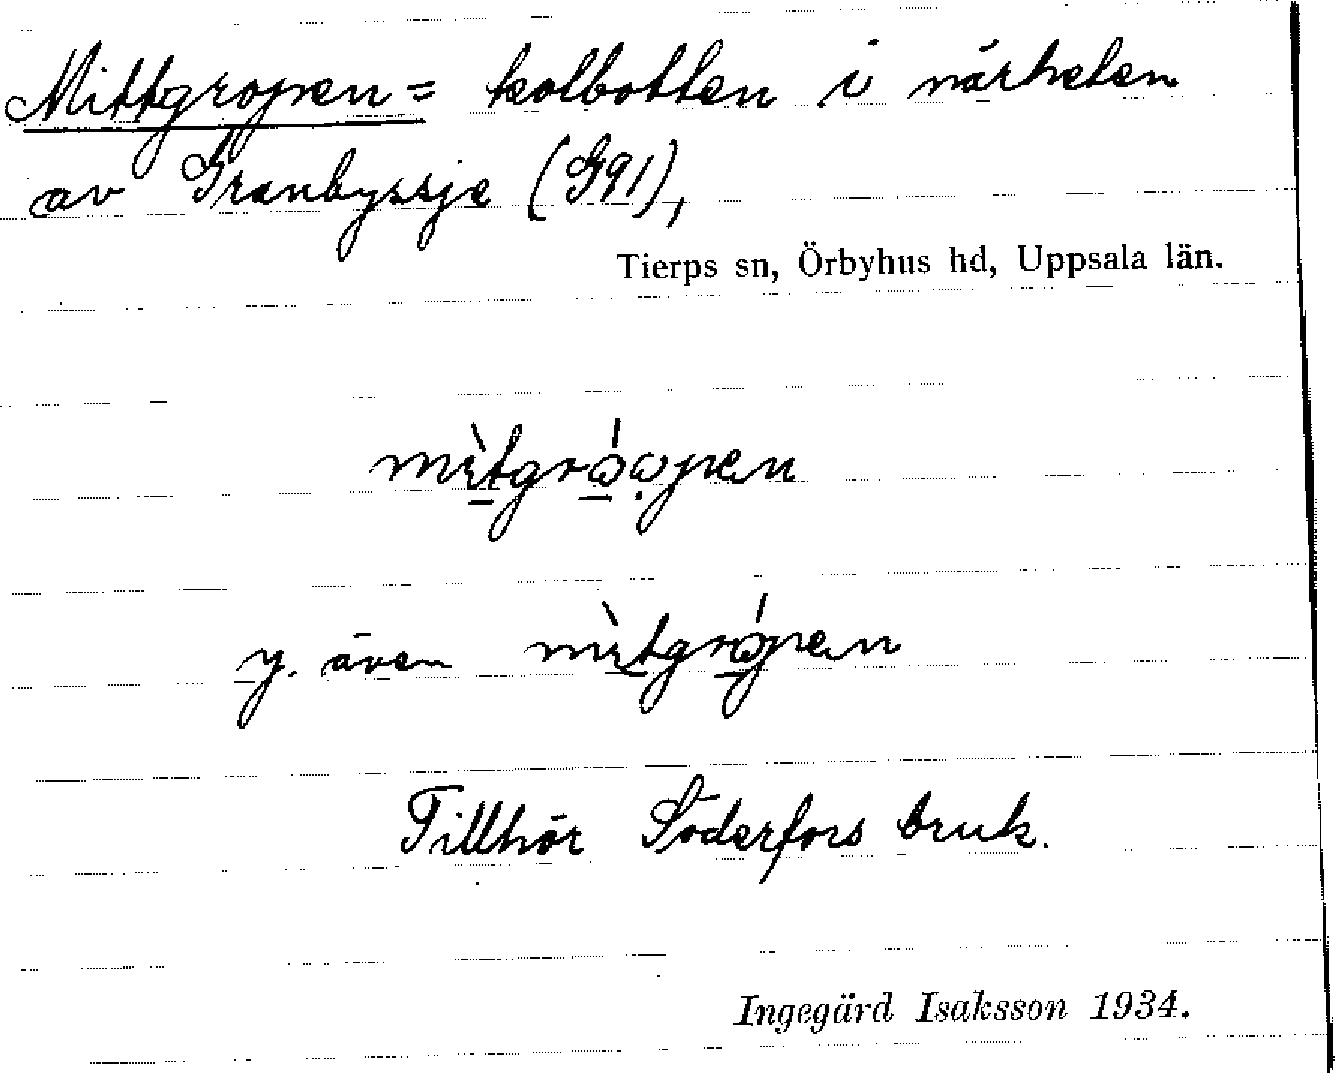 Mittgropen = kolbotten i närheten
av Granbyssje (G91),
Tierps sn, Örbyhus hd, Uppsala län.
y. även
Tillhör Söderfors bruk.
Ingegärd Isaksson 1934.